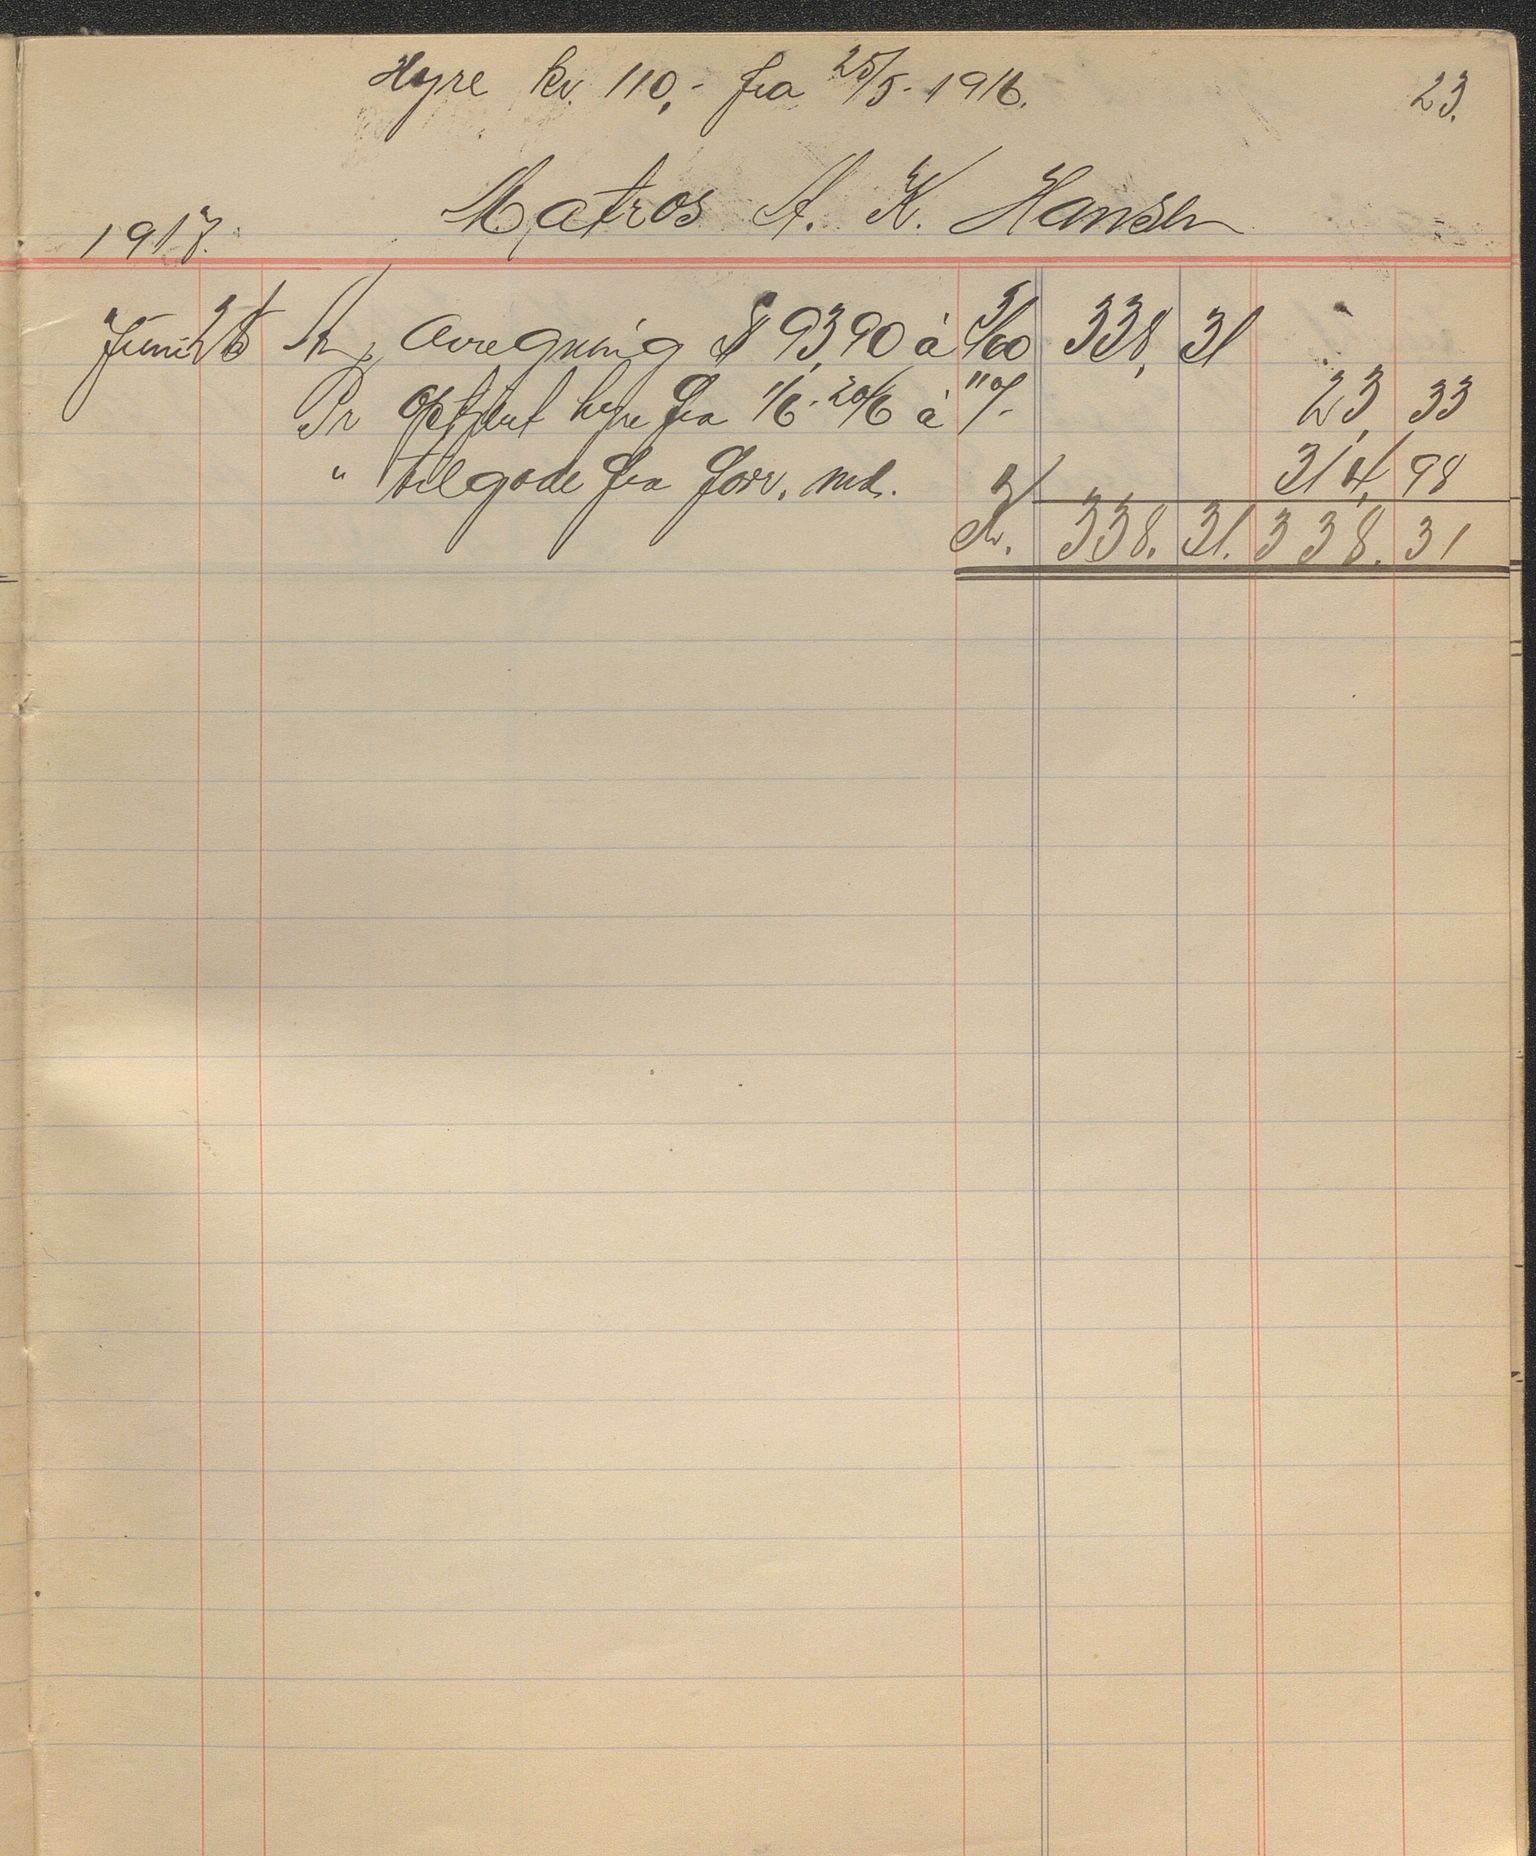 Hyre kr. 110,- fra 25/5-1916.
23.
Matros A. K. Hansen
1917.
Juni 26 An avregning $ 93,90 à 3/60 338, 31
Pr optjent hyre fra 1/6-20/6 à 110/- 23, 33
" tilgode fra forr. md. 314, 98
Kr. 338. 31. 338. 31